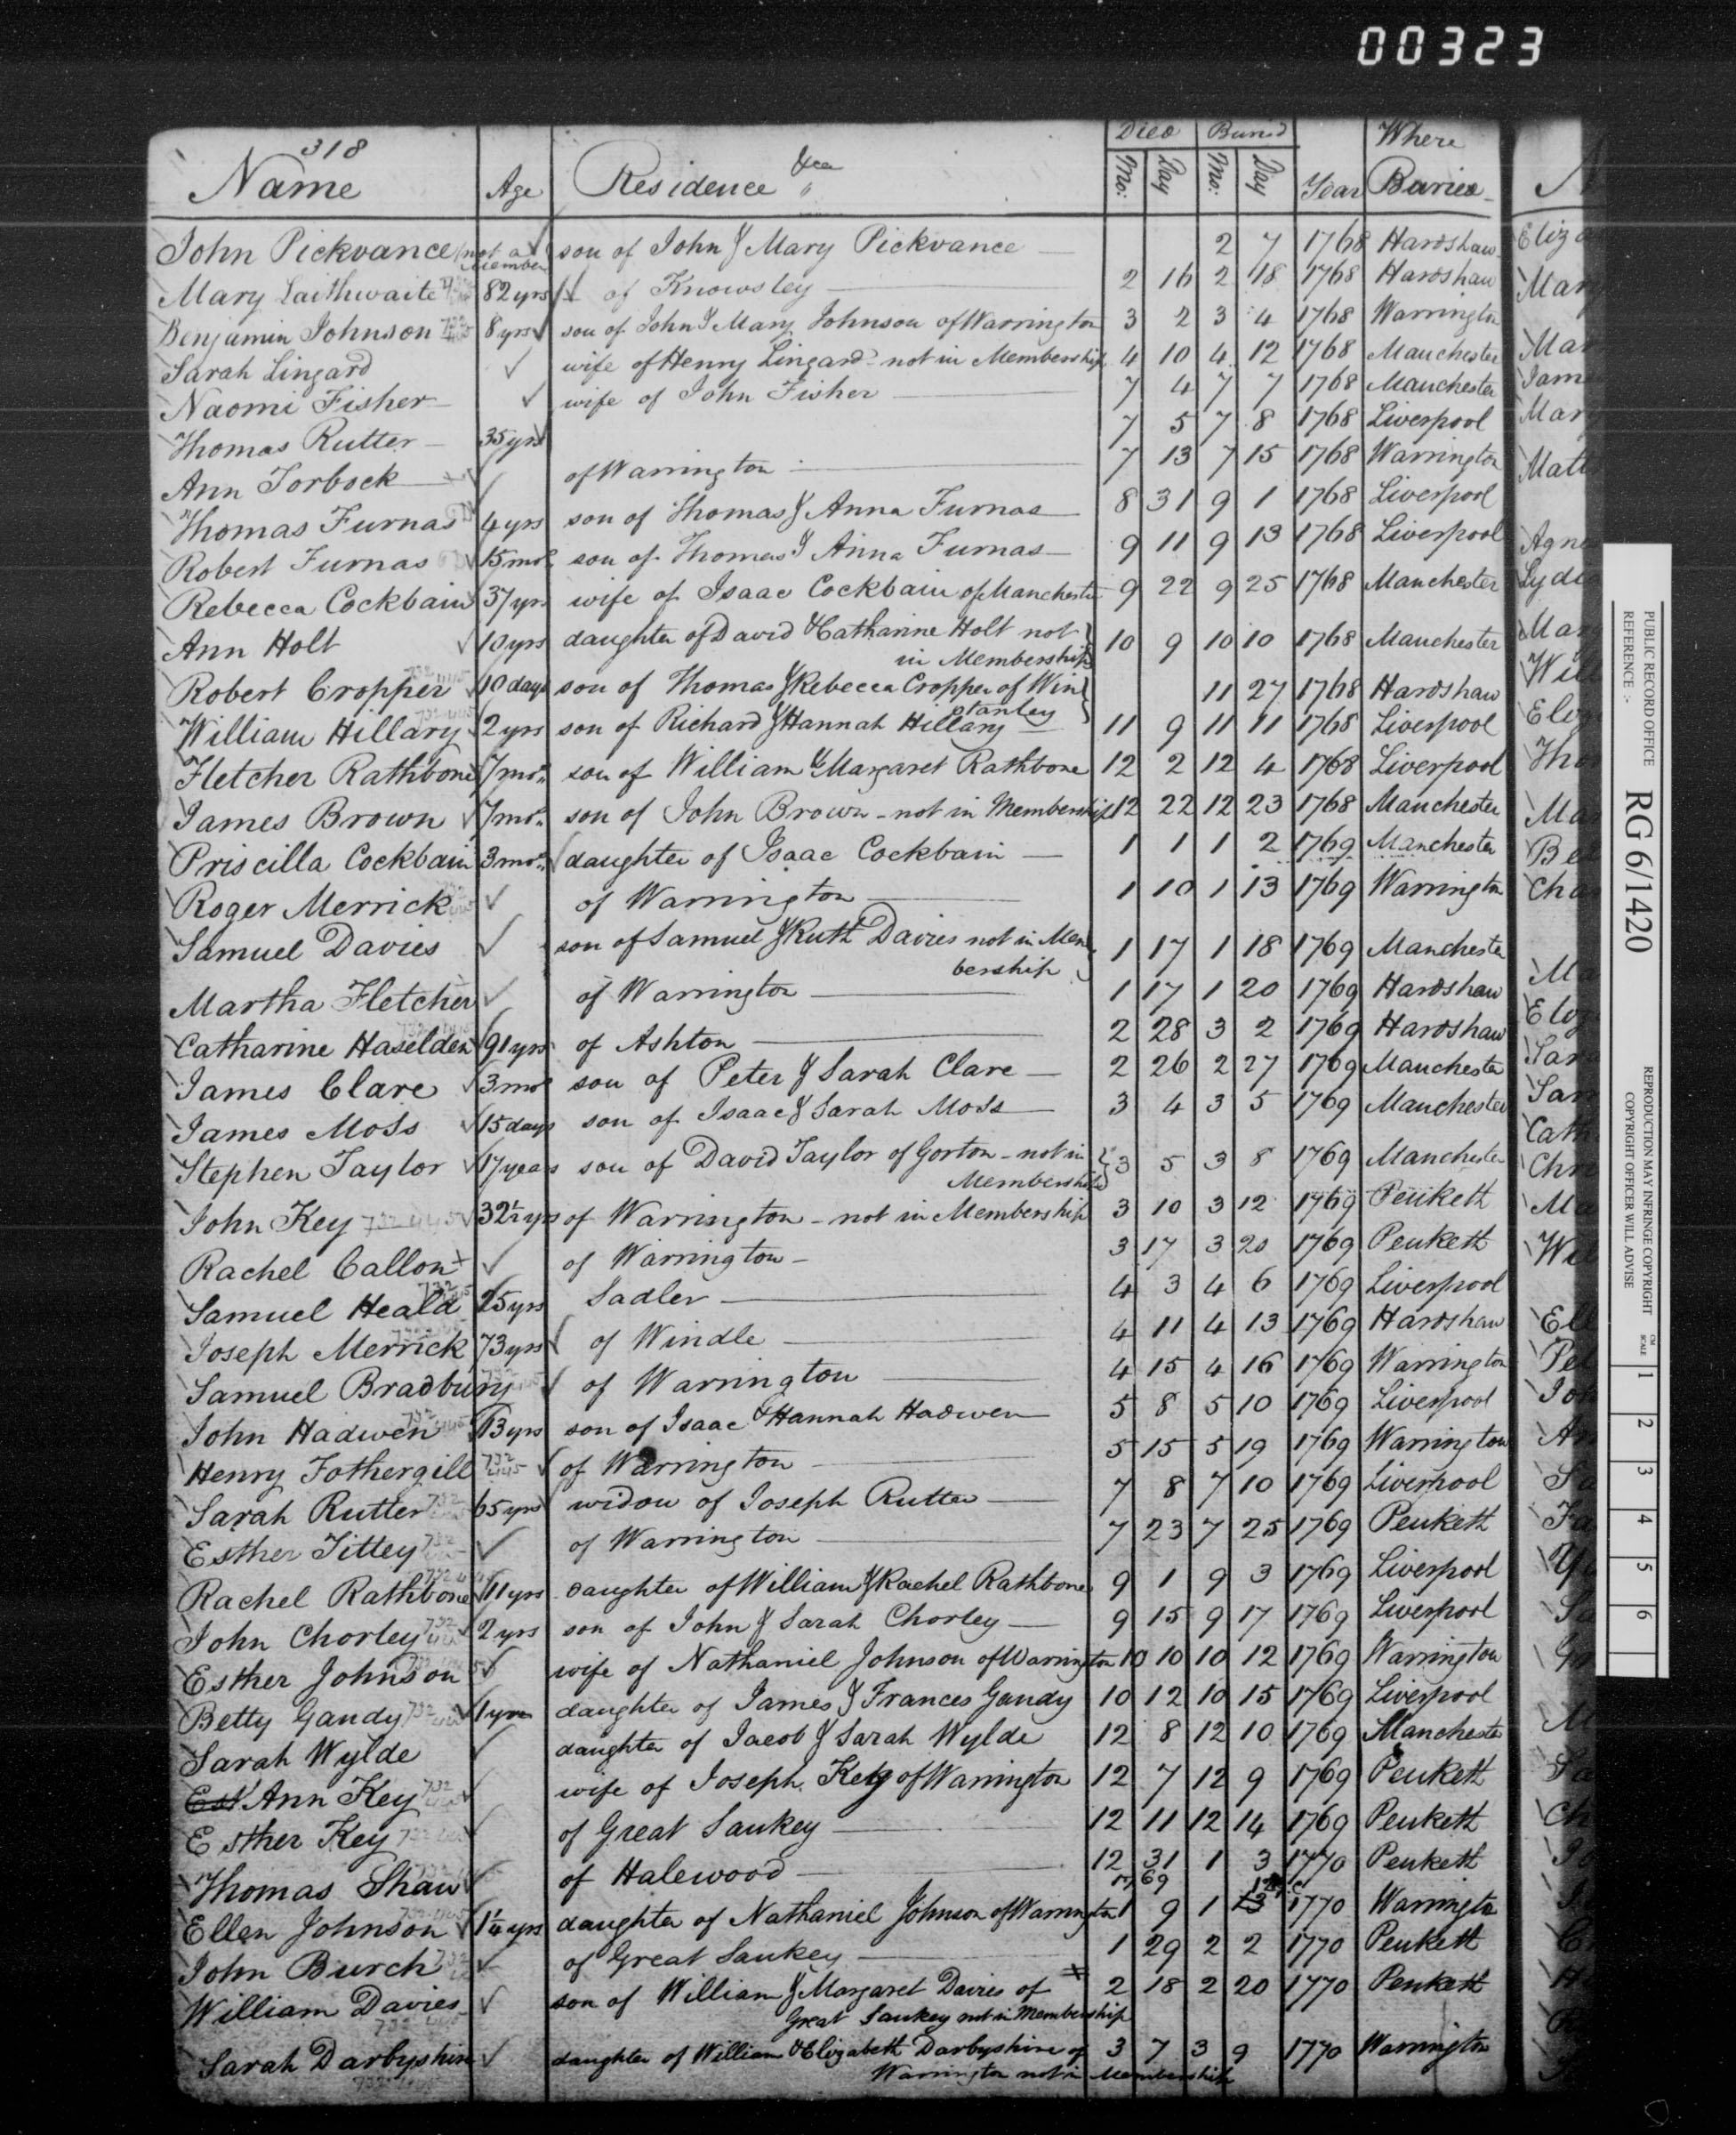 00323
318
Name Age Residence &ca Died Mo: Day Buried Mo: Day Year Where Buried
John Pickvance (not a Member son of John & Mary Pickvance 2 7 1768 Hardshaw
Mary Laithwaite 82 yrs of Knowsley 2 16 2 18 1768 Hardshaw
Benjamin Johnson 8 yrs son of John & Mary Johnson of Warrington 3 2 3 4 1768 Warrington
Sarah Lingard wife of Henry Lingard - not in Membership 4 10 4 12 1768 Manchester
Naomi Fisher wife of John Fisher 7 4 7 7 1768 Manchester
Thomas Rutter 35 yrs 7 5 7 8 1768 Liverpool
Ann Torbock of Warrington 7 13 7 15 1768 Warrington
Thomas Furnas 4 yrs son of Thomas & Anna Furnas 8 31 9 1 1768 Liverpool
Robert Furnas 15 mos son of Thomas & Anna Furnas 9 11 9 13 1768 Liverpool
Rebecca Cockbain 37 yrs wife of Isaac Cockbain of Manchester 9 22 9 25 1768 Manchester
Ann Holt 10 yrs daughter of David & Catharine Holt not 10 9 10 10 1768 Manchester
in Membership
Robert Cropper 10 days son of Thomas & Rebecca Cropper of Win 11 27 1768 Hardshaw
stanley
William Hillary 2 yrs son of Richard & Hannah Hillary 11 9 11 11 1768 Liverpool
Fletcher Rathbone 7 mos son of William & Margaret Rathbone 12 2 12 4 1768 Liverpool
James Brown 7 mos son of John Brown - not in Membership 12 22 12 23 1768 Manchester
Priscilla Cockbain 3 mos daughter of Isaac Cockbain 1 1 1 2 1769 Manchester
Roger Merrick of Warrington 1 10 1 13 1769 Warrington
Samuel Davies son of Samuel & Ruth Davies not in Mem 1 17 1 18 1769 Manchester
bership
Martha Fletcher of Warrington 1 17 1 20 1769 Hardshaw
Catharine Haselden 91 yrs of Ashton 2 28 3 2 1769 Hardshaw
James Clare 3 mos son of Peter & Sarah Clare 2 26 2 27 1769 Manchester
James Moss 15 days son of Isaac & Sarah Moss 3 4 3 5 1769 Manchester
Stephen Taylor 17 years son of David Taylor of Gorton - not in 3 5 3 8 1769 Manchester
Membership
John Key 32½ yrs of Warrington - not in Membership 3 10 3 12 1769 Penketh
Rachel Callon of Warrington - 3 17 3 20 1769 Penketh
Samuel Heald 25 yrs Sadler 4 3 4 6 1769 Liverpool
Joseph Merrick 73 yrs of Windle 4 11 4 13 1769 Hardshaw
Samuel Bradbury of Warrington 4 15 4 16 1769 Warrington
John Hadwen 13 yrs son of Isaac & Hannah Hadwen 5 8 5 10 1769 Liverpool
Henry Fothergill of Warrington 5 15 5 19 1769 Warrington
Sarah Rutter 65 yrs widow of Joseph Rutter 7 8 7 10 1769 Liverpool
Esther Titley of Warrington 7 23 7 25 1769 Penketh
Rachel Rathbone 11 yrs daughter of William & Rachel Rathbone 9 1 9 3 1769 Liverpool
John Chorley 2 yrs son of John & Sarah Chorley 9 15 9 17 1769 Liverpool
Esther Johnson wife of Nathaniel Johnson of Warrington 10 10 10 12 1769 Warrington
Betty Gandy 1 year daughter of James & Frances Gandy 10 12 10 15 1769 Liverpool
Sarah Wylde daughter of Jacob & Sarah Wylde 12 8 12 10 1769 Manchester
Est Ann Key wife of Joseph Key of Warrington 12 7 12 9 1769 Penketh
Esther Key of Great Sankey 12 11 12 14 1769 Penketh
Thomas Shaw of Halewood 12 31 1 3 1770 Penketh
1769
Ellen Johnson 1¼ yrs daughter of Nathaniel Johnson of Warrington 1 9 1 13 1770 Warrington
John Burch of Great Sankey 1 29 2 2 1770 Penketh
William Davies son of William & Margaret Davies of 2 18 2 20 1770 Penketh
Great Sankey not in Membership
Sarah Darbyshire daughter of William & Elizabeth Darbyshire of 3 7 3 9 1770 Warrington
Warrington not in Membership
PUBLIC RECORD OFFICE
REFERENCE :-
RG 6/1420
REPRODUCTION MAY INFRINGE COPYRIGHT
COPYRIGHT OFFICER WILL ADVISE
CM
SCALE
1 2 3 4 5 6